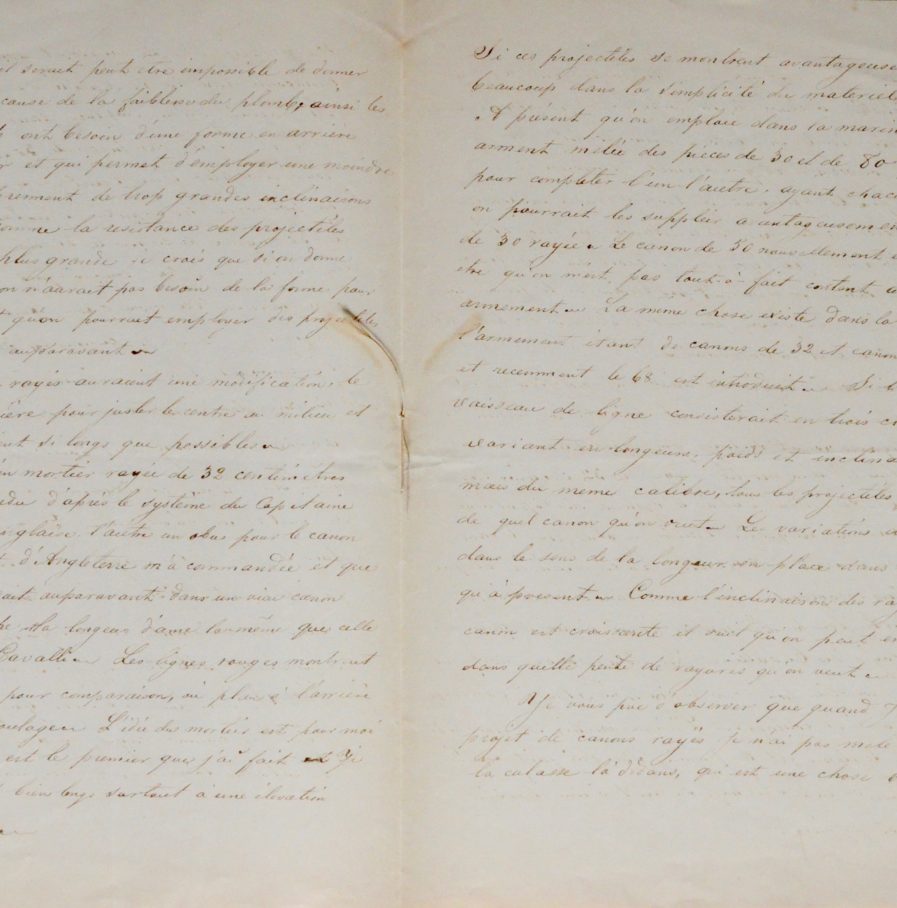 il serait peut être impossible de donner
cause de la faiblesse du plomb, ainsi les
ont besoin d'une forme en arrière
et qui permet d'employer une moindre
de trop grandes inclinaisons
comme la resistance des projectiles
plus grande je crois que si on donne
on n'aurait pas besoin de la forme pour
qu'on pourrait employer des projectiles
auparavant
rayés auraient une modification, le
pour juster le centre au milieu et
si longs que possibles
un mortier rayée de 32 centimètres
d'après le système du Capitaine
anglaise l'autre un obus pour le canon
d'Angleterre m'a commandée et que
auparavant dans un vrai canon
la longeur d'ame la même que celle
Cavalli Les lignes rouges montrent
pour comparaison, où plus à l'arrière
L'idée du mortier est pour moi
est le premier que j'ai fait Je
bien longs surtout à une élevation
Si ces projectiles se montrent avantageuse
beaucoup dans la simplicité du materiel
A présent qu'on emploie dans la marin
arment mêlée des pièces de 30 et de 80
pour completer l'un l'autre, ayant chac
on pourrait les suppléir avantageusement
de 30 rayée Le canon de 50 nouvellement
etre qu'on n'est pas tout-à-fait content
armement La même chose existe dans la
l'armement étant de canons de 32 et cano
et recemment le 68 est introduit Si l
vaisseau de ligne consisterait en trois c
variant en longeur, poids et inclina
mais du même calibre, tous les projectiles
de quel canon qu'on veut Les variations
dans le sens de la longeur, son place dans
qu'à présent Comme l'inclinaison des ra
canon est croissante il veut qu'on peut
dans quelle pente de rayures qu'on veut
Je vous prie d'observer que quand
projet de canons rayés je n'ai pas mele
la culasse là dedans, qui est une chose